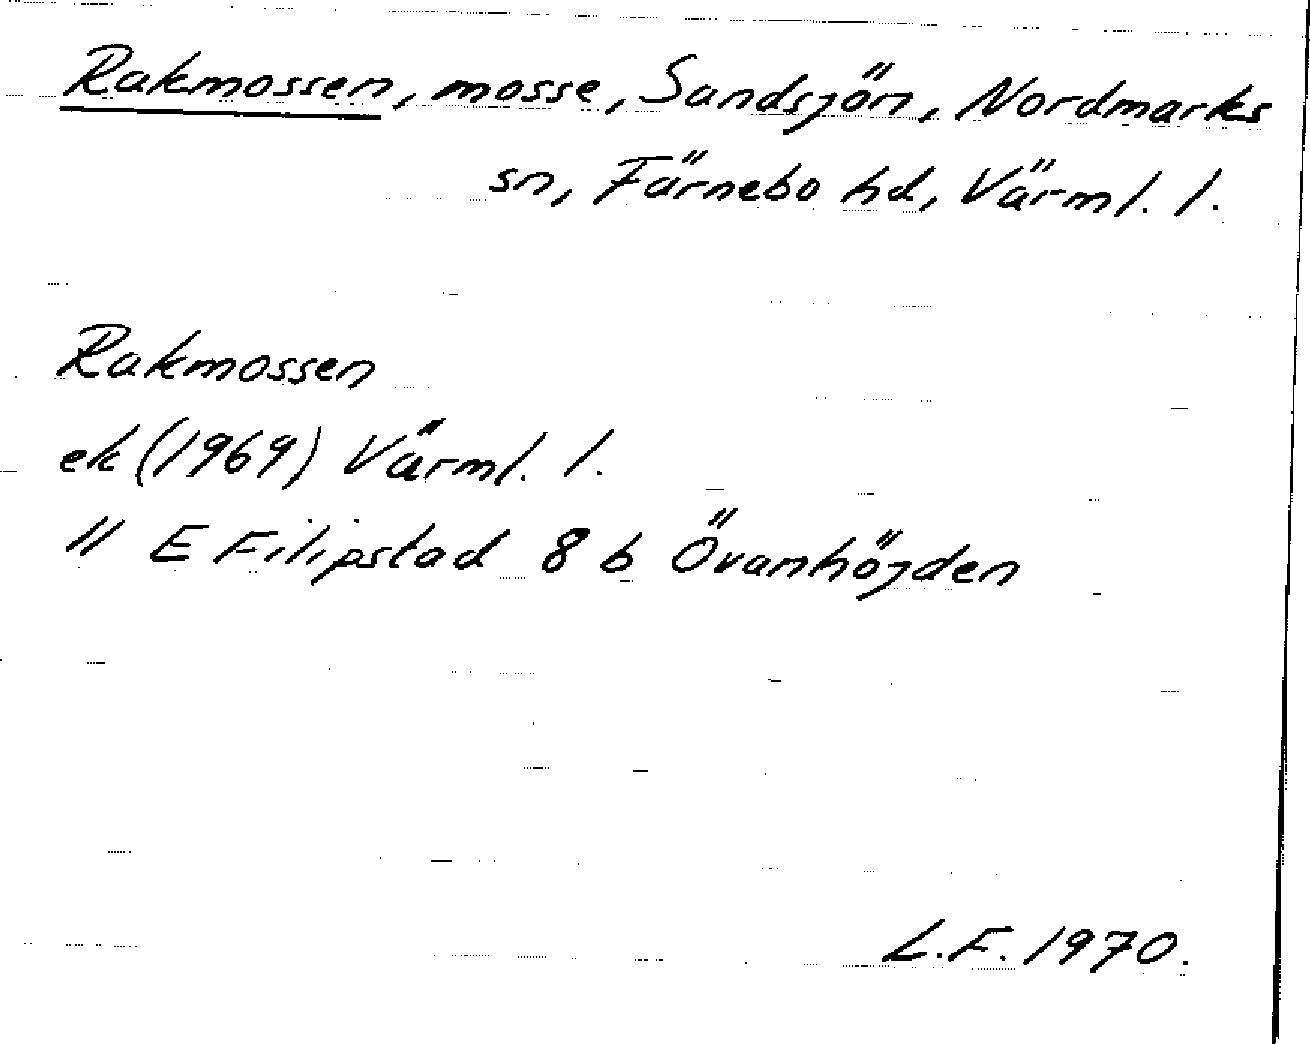 Rakmossen, mosse, Sandsjön, Nordmarks
sn, Färnebo hd, Värml. l.
Rakmossen
ek (1969) Värml. l.
11 E Filipstad 8 b Övanhöjden
L.F. 1970.